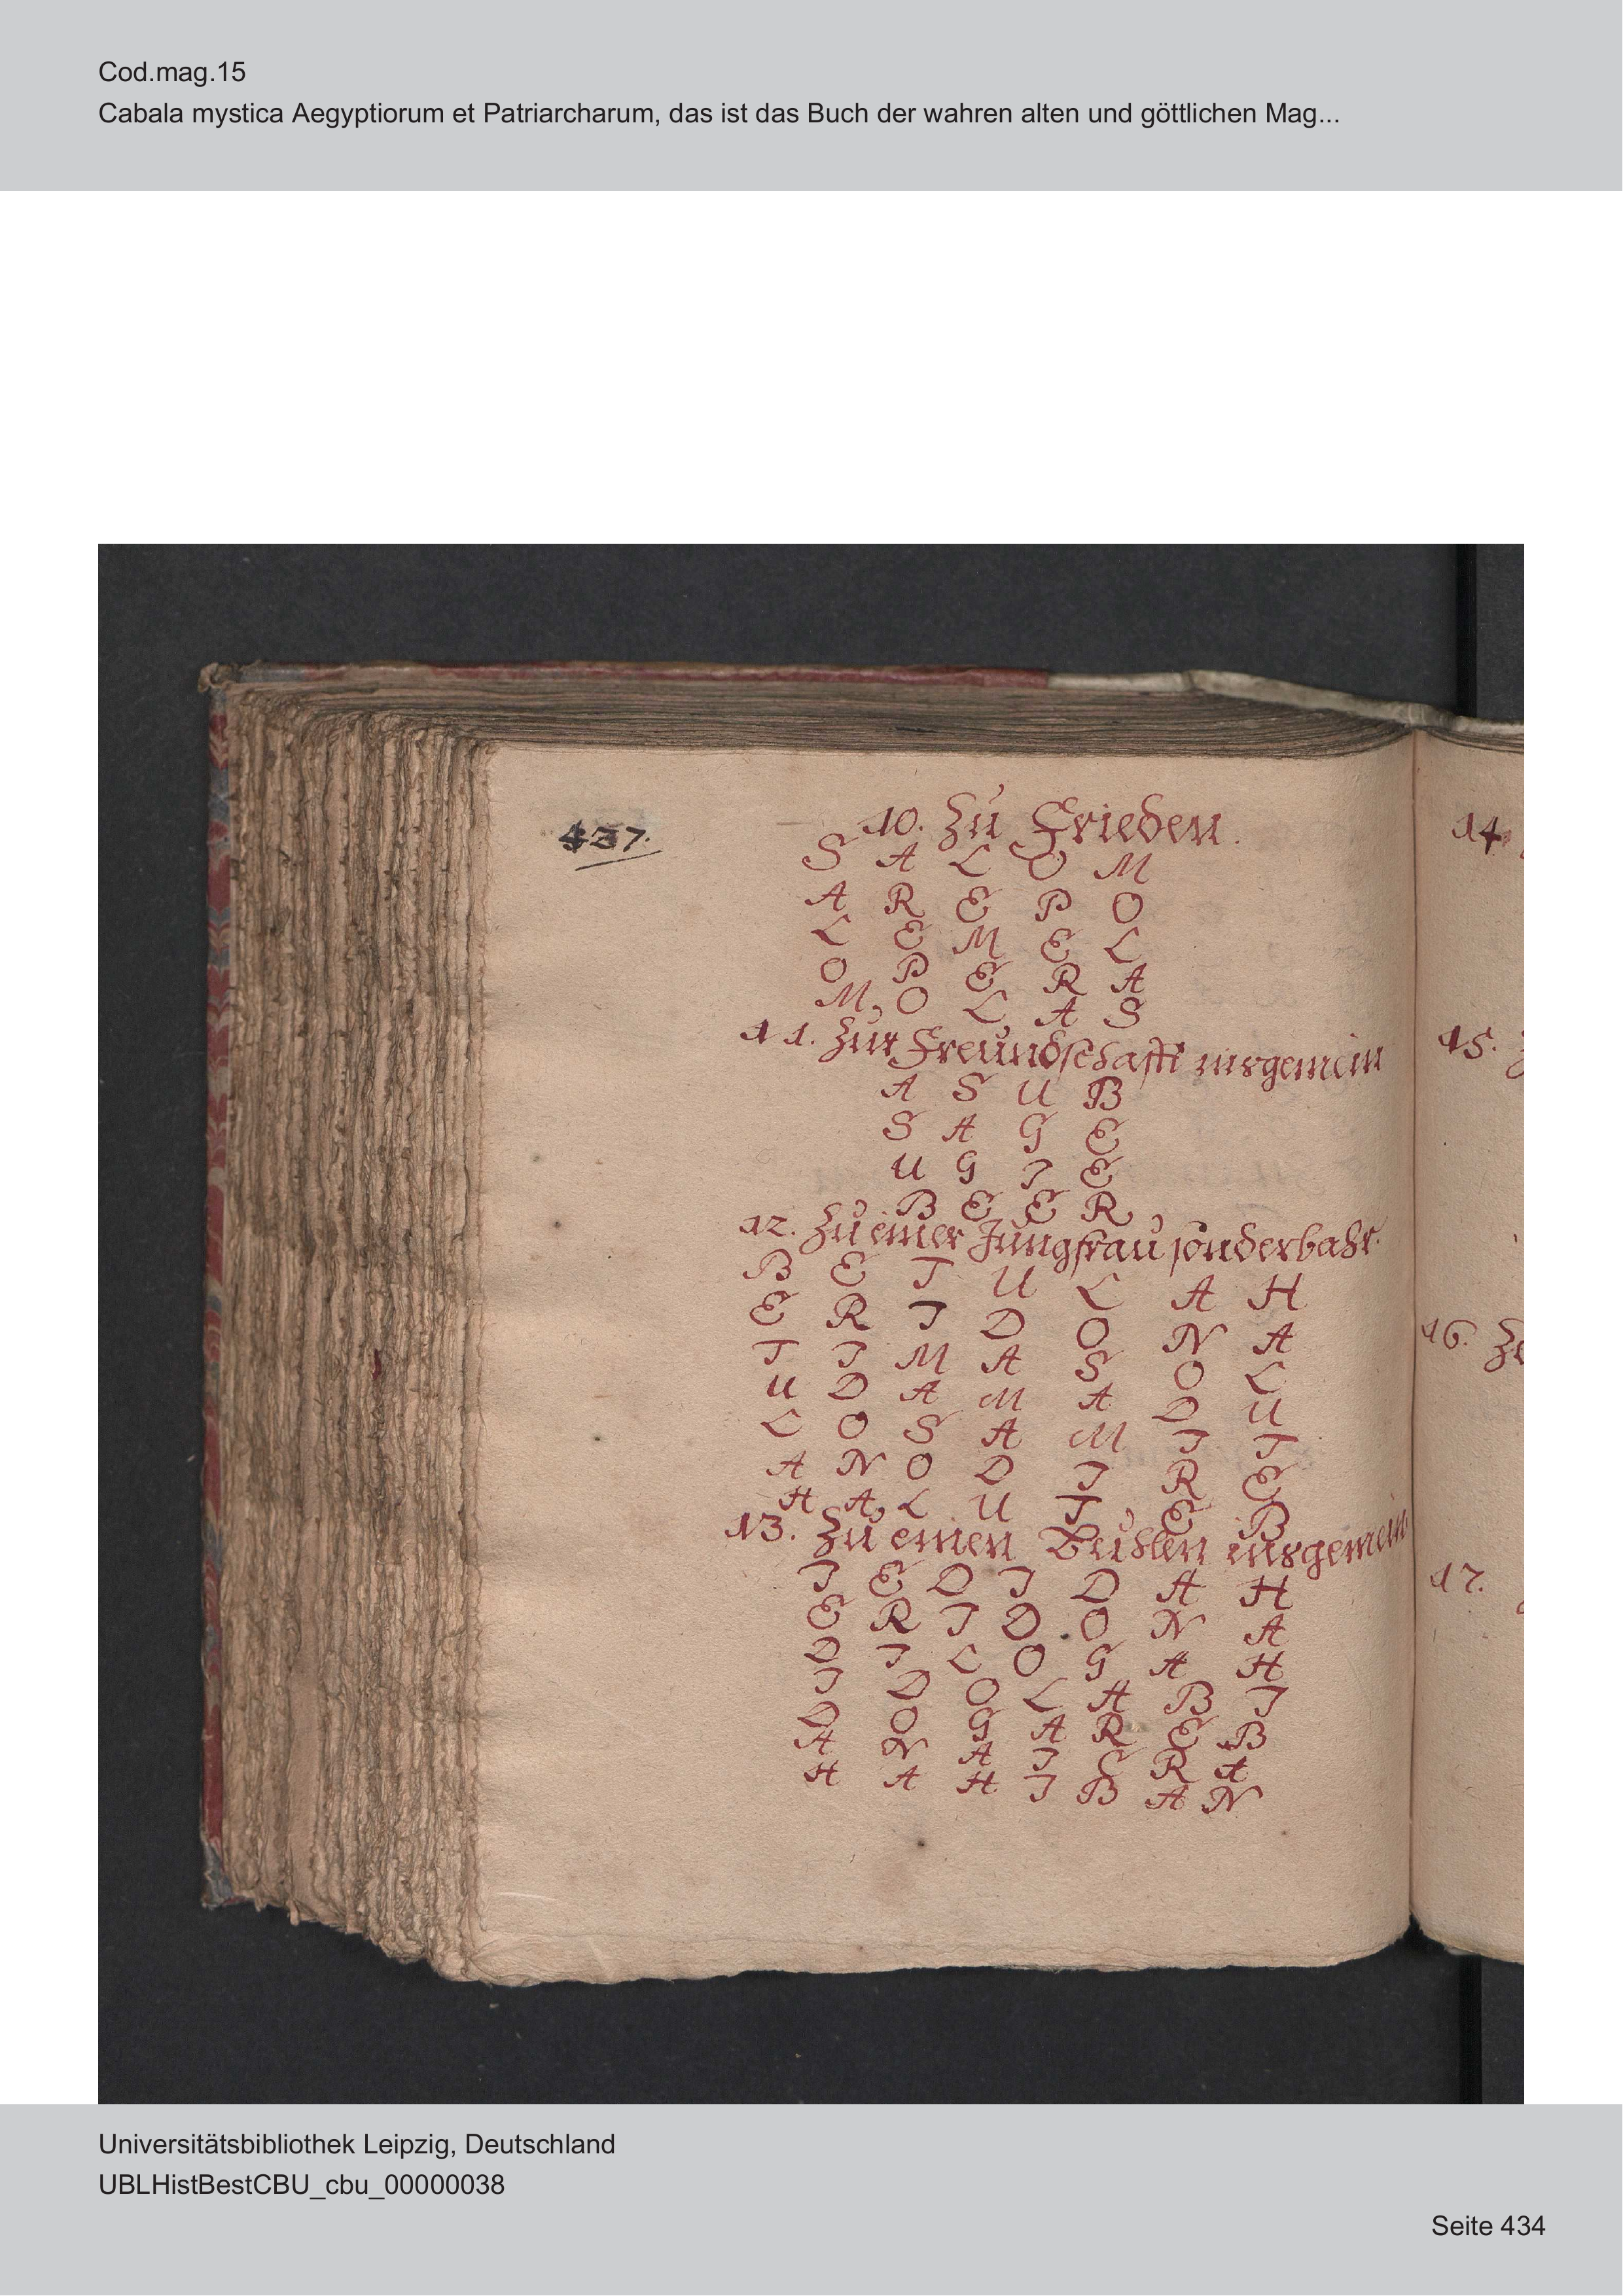 Cod.mag.15
Cabala mystica Aegyptiorum et Patriarcharum, das ist das Buch der wahren alten und göttlichen Mag...
437.
10. Zu Frieden.
S A L O M
A R E P O
L E M E L
O P E R A
M O L A S
11. Zur Freundschafft insgemein
A S U B
S A G E
U G I E
B E E R
12. Zu einer Jungfrau sonderbahr.
B E T U L A H
E R I D O N A
T I M A S O L
U D A M A D U
L O S A M I T
A N O D I R E
H A L U T E B
13. Zu einen Buhlen insgemein
I E D I D A H
E R I D O N A
D I L O G A H
I D O L A B I
D O G A R E B
A N A I E R A
H A H I B A N
14.
15.
16. Zu
17.
Universitätsbibliothek Leipzig, Deutschland
UBLHistBestCBU_cbu_00000038
Seite 434